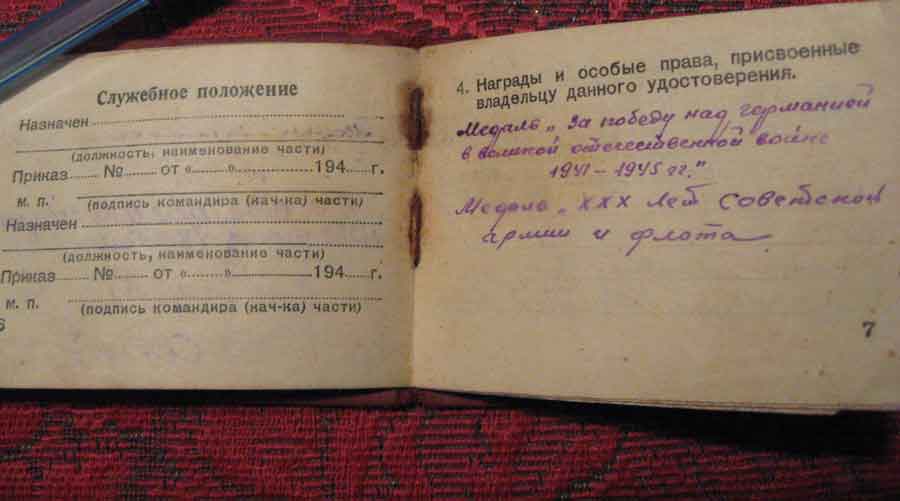 Служебное положение
Назначен
(должность, наименование части)
Приказ № от « » 194 г.
м. п. (подпись командира (нач-ка) части)
Назначен
(должность, наименование части)
Приказ № от « » 194 г.
м. п. (подпись командира (нач-ка) части)
6
4. Награды и особые права, присвоенные
владельцу данного удостоверения.
Медаль „За победу над германией
в великой отечественной войне
1941–1945 гг."
Медаль „XXX лет Советской
армии и флота
7